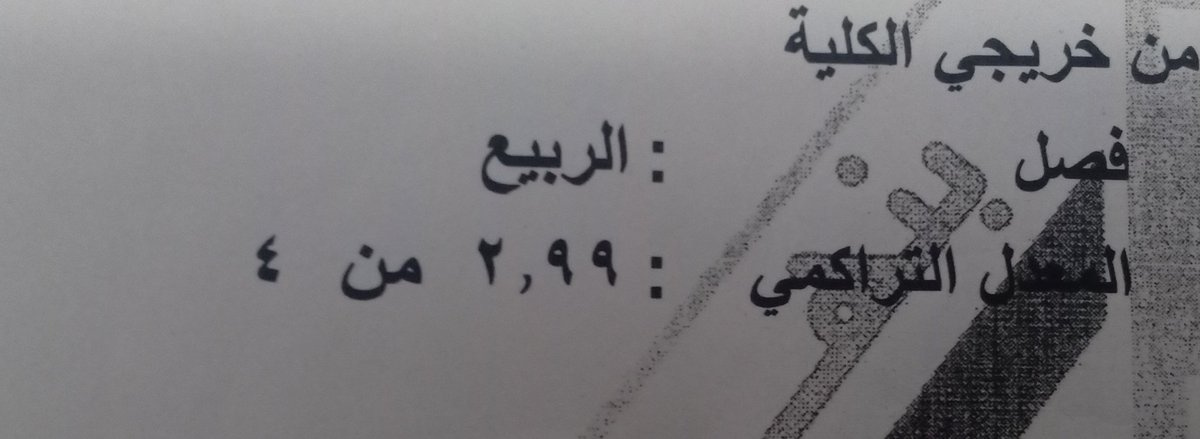 من خريجي الكلية
فصل : الربيع
المعدل التراكمي : ٢,٩٩ من ٤